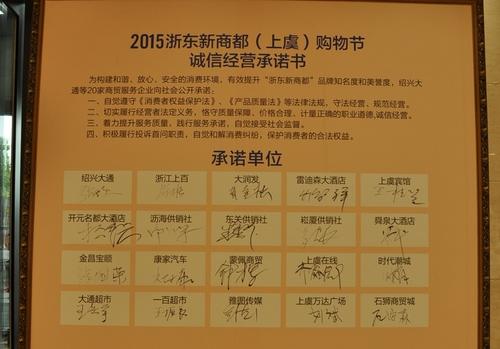 2015浙东新商都（上虞）购物节
诚信经营承诺书
为构建和谐、放心、安全的消费环境，有效提升“浙东新商都”品牌知名度和美誉度，绍兴大
通等20家商贸服务企业向社会公开承诺：
一、自觉遵守《消费者权益保护法》、《产品质量法》等法律法规，守法经营、规范经营。
二、切实履行经营者法定义务，恪守质量保障、价格合理、计量正确的职业道德，诚信经营。
三、着力提升服务质量，践行服务承诺，自觉接受社会监督。
四、积极履行投诉首问职责，自觉和解消费纠纷，保护消费者的合法权益。
承诺单位
绍兴大通 浙江上百 大润发 雷迪森大酒店 上虞宾馆
开元名都大酒店 沥海供销社 东关供销社 崧厦供销社 舜泉大酒店
金昌宝顺 康家汽车 蒙佩商贸 上虞在线 时代潮城
大通超市 一百超市 雅图传媒 上虞万达广场 石狮商贸城